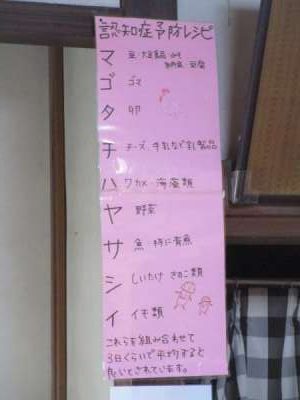 認知症予防レシピ
マ 豆・大豆製品 みそ
納豆・豆腐
ゴ ゴマ
タ 卵
チ チーズ、牛乳など乳製品
ハ ワカメ 海藻類
ヤ 野菜
サ 魚 特に青魚
シ しいたけ きのこ類
イ イモ類
これらを組み合わせて
3日くらいで平均すると
良いとされています。